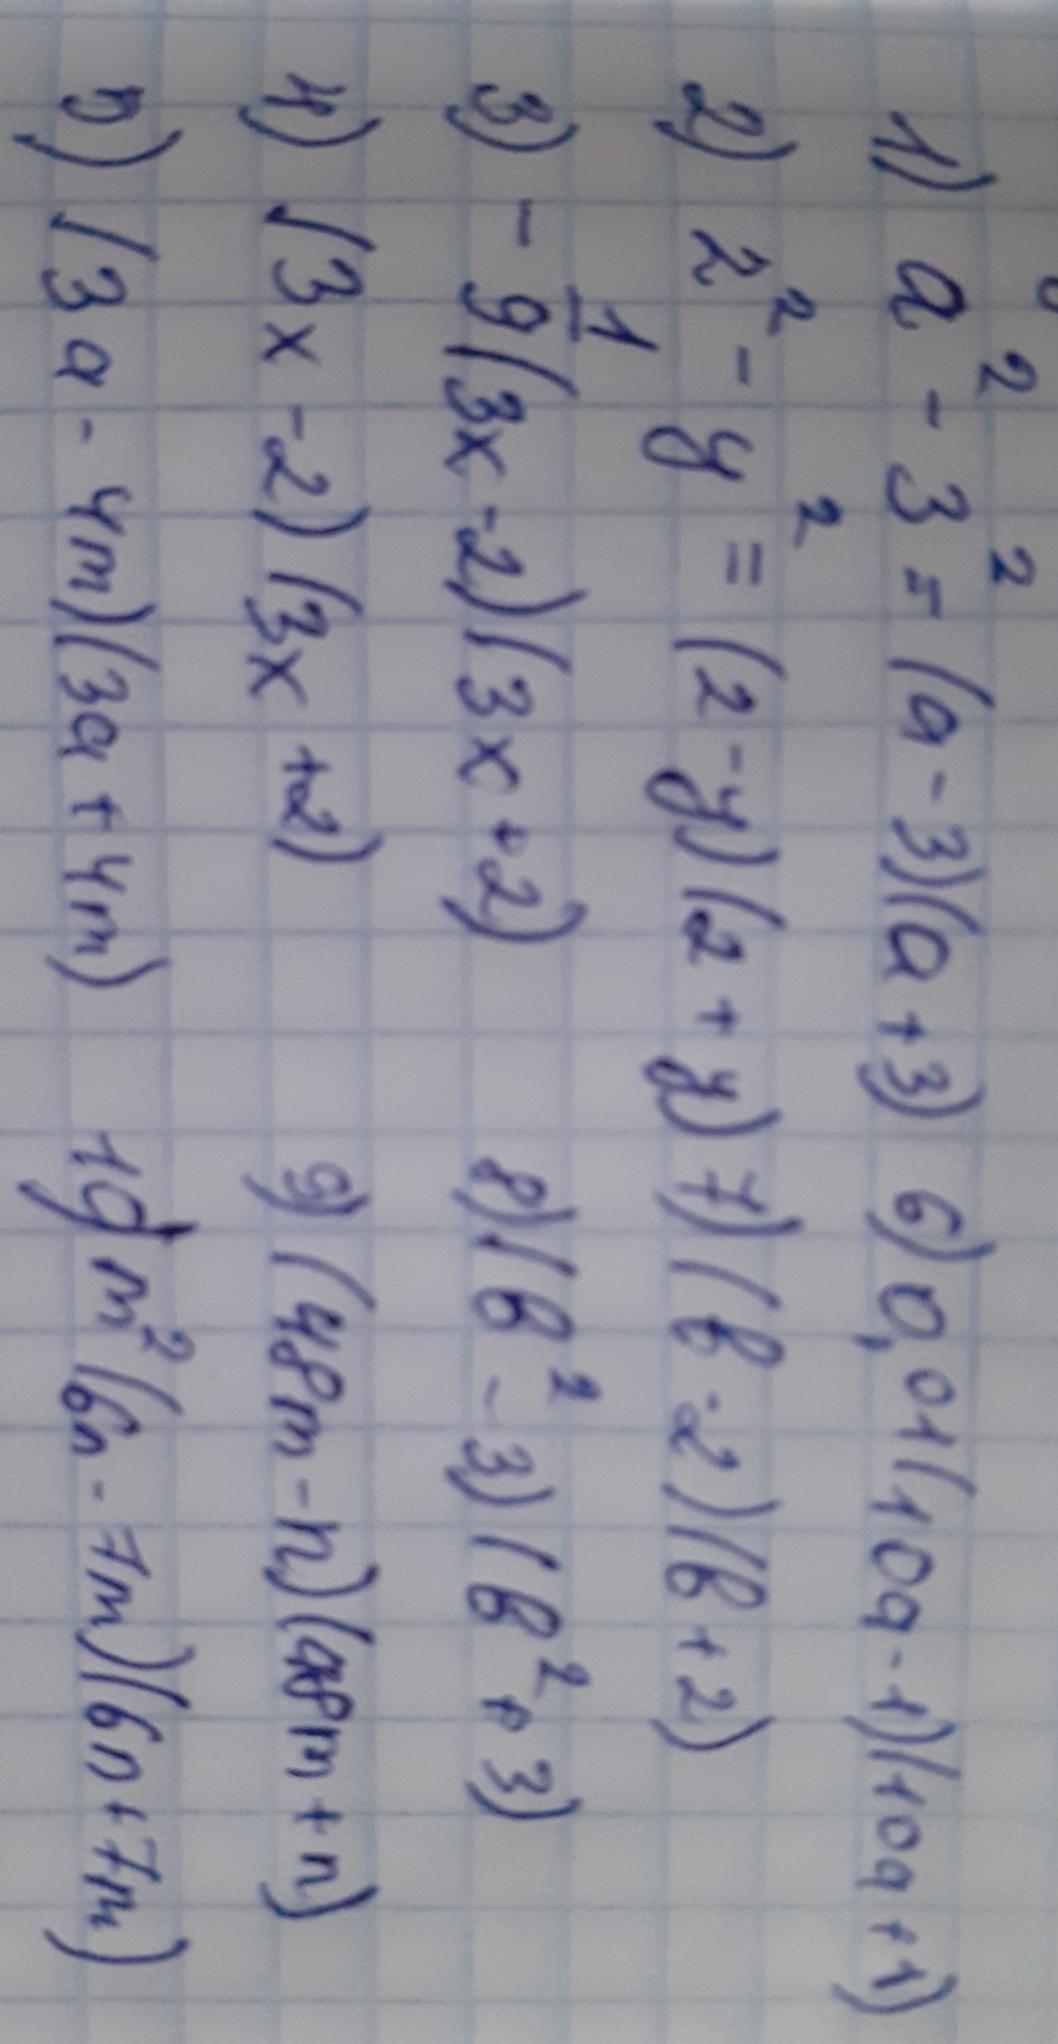 1) a² - 3² = (a - 3)(a + 3)
2) 2² - y² = (2 - y)(2 + y)
3) - 1/9 (3x - 2)(3x + 2)
4) (3x - 2)(3x + 2)
5) (3a - 4m)(3a + 4m)
6) 0,01(10a - 1)(10a + 1)
7) (в - 2)(в + 2)
8) (в² - 3)(в² + 3)
9) (48m - n)(48m + n)
10) m²(6n - 7m)(6n + 7m)